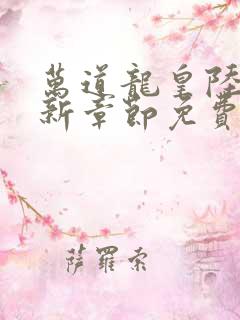 萬道龍皇陸
新章節免費
薩羅索